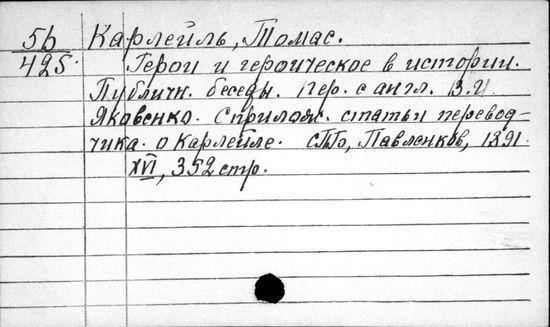 5б Карлейль, Томас.
425. Герои и героическое в истории.
Публичн. беседы. Пер. с англ. В.И.
Яковенко. С прилож. статьи перевод-
чика о Карлейле. СПб, Павленков, 1891.
XVI, 352 стр.